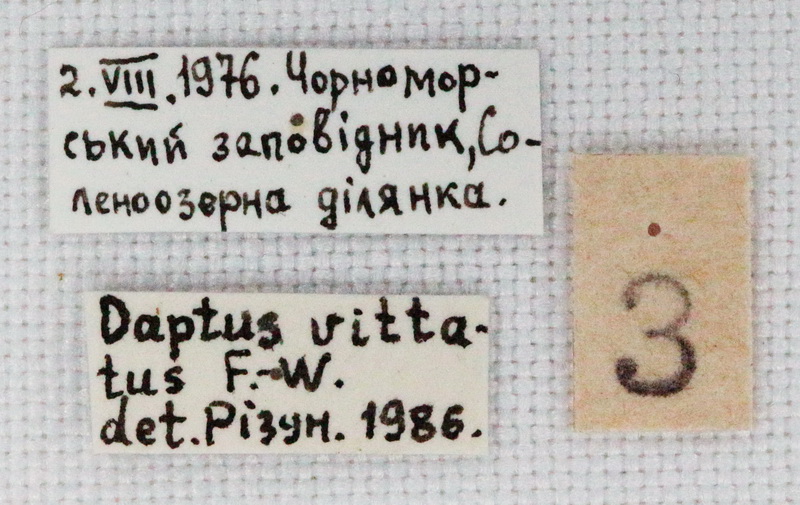 2.VIII.1976. Чорномор-
ський заповідник, Со-
леноозерна ділянка.
Daptus vitta-
tus F.-W.
det. Різун. 1986.
3